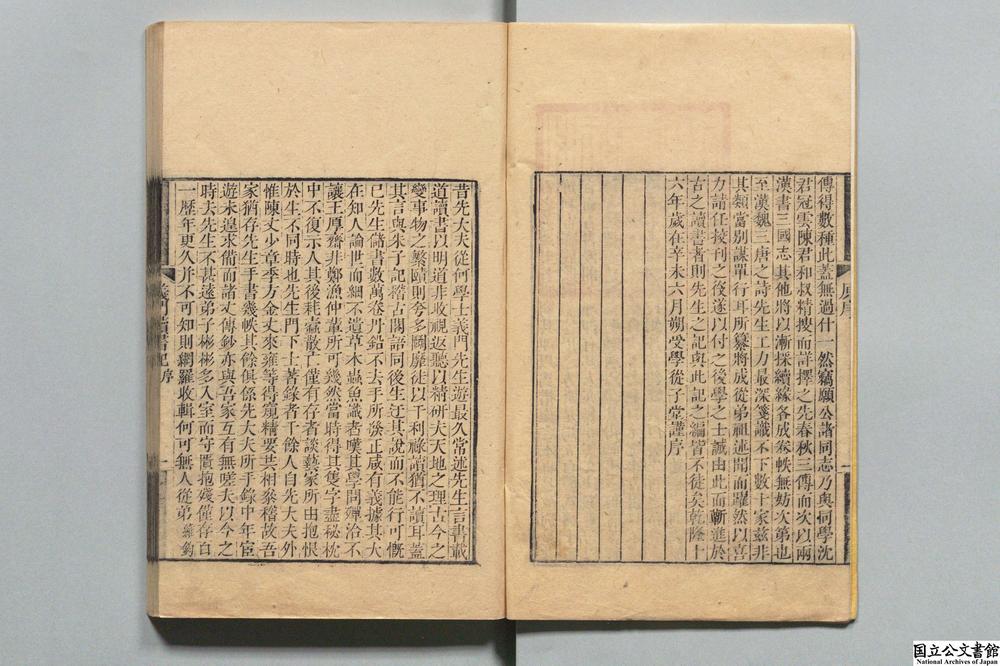 傳得數種此蓋無過什一然竊願公諸同志乃與同學沈
君冠雲陳君和叔精搜而詳擇之先春秋三傳而次以兩
漢書三國志其他將以漸採續緣各成卷帙無妨次第也
至漢魏三唐之詩先生工力最深箋識不下數十家茲非
其類當別謀單行耳所纂將成從弟祖述聞而躍然以喜
力請任授刊之役遂以付之後學之士誠由此而蘄進於
古之讀書者則先生之記與此記之編皆不徒矣乾隆十
六年歲在辛未六月朔受學從子堂謹序
昔先大夫從何學士義門先生遊最久常述先生言書載
道讀書以明道非收視返聽以精研夫天地之理古今之
變事物之繁賾則夸多鬬靡徒以干利祿讀猶不讀耳蓋
其言與朱子記稽古閣諳同後生迂其說而不能行可慨
已先生儲書數萬卷丹鉛不去手所發正咸有義據其大
在知人論世而細不遺草木蟲魚識者嘆其學問殫洽不
讓王厚齋非鄭漁仲輩所可幾然當時得其隻字盡秘枕
中不復示人其後耗蠹散亡僅有存者談藝家所由抱恨
於生不同時也先生門下士著錄者千餘人自先大夫外
惟陳丈少章季方金丈來雍等得窺精要共相參稽故吾
家猶存先生手書幾帙其餘俱係先大夫所手錄中年宦
遊未遑求備而諸丈傳鈔亦與吾家互有無嗟夫以今之
時去先生不甚遠弟子彬彬多入室而守匱抱殘僅存百
一歷年更久并不可知則網羅收輯何可無人從弟維鈞
義門讀書記序
国立公文書館
National Archives of Japan